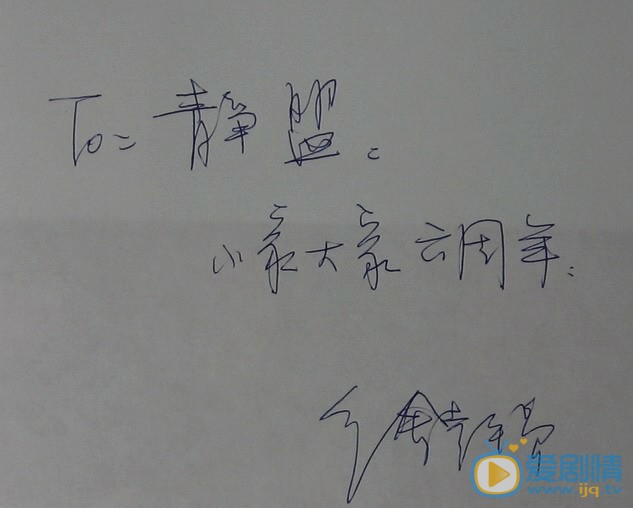 To: 静盟.
小家大家六周年.
爱剧情
www.ijq.tv